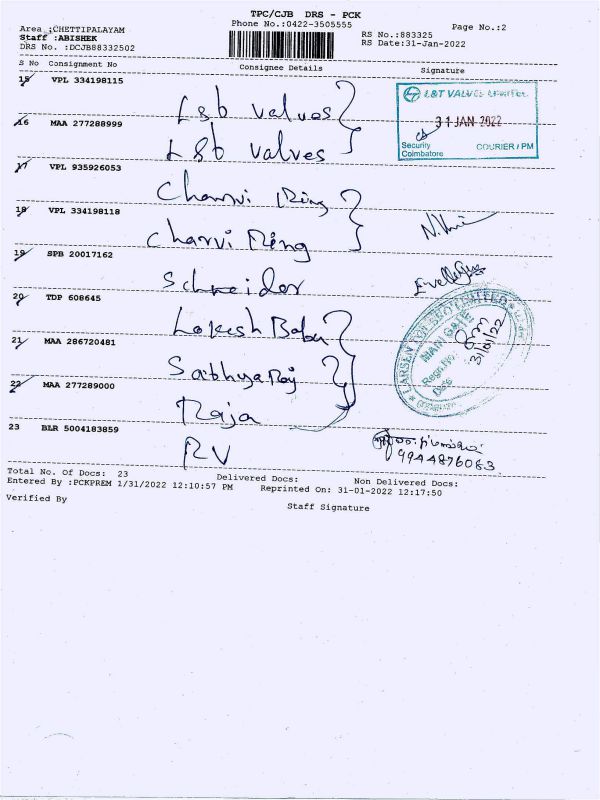 TPC/CJB DRS - PCK
Phone No.:0422-3505555
Page No.:2
Area :CHETTIPALAYAM
Staff :ABISHEK
DRS No. :DCJB88332502
RS No.:883325
RS Date:31-Jan-2022
S No Consignment No Consignee Details Signature
15 VPL 334198115
L&b valves
L&T VALVES LIMITED
31 JAN 2022
Security COURIER / PM
Coimbatore
16 MAA 277288999
L&b valves
17 VPL 935926053
Charvi Ring
18 VPL 334198118
Charvi Ring
19 SPB 20017162
Schneider
20 TDP 608645
Lokesh Babu
21 MAA 286720481
Sathya Raj
MAIN GATE
Regn.No.
Date
31/01/22
22 MAA 277289000
Raja
23 BLR 5004183859
RV
9944876083
Total No. Of Docs: 23 Delivered Docs: Non Delivered Docs:
Entered By :PCKPREM 1/31/2022 12:10:57 PM Reprinted On: 31-01-2022 12:17:50
Verified By
Staff Signature